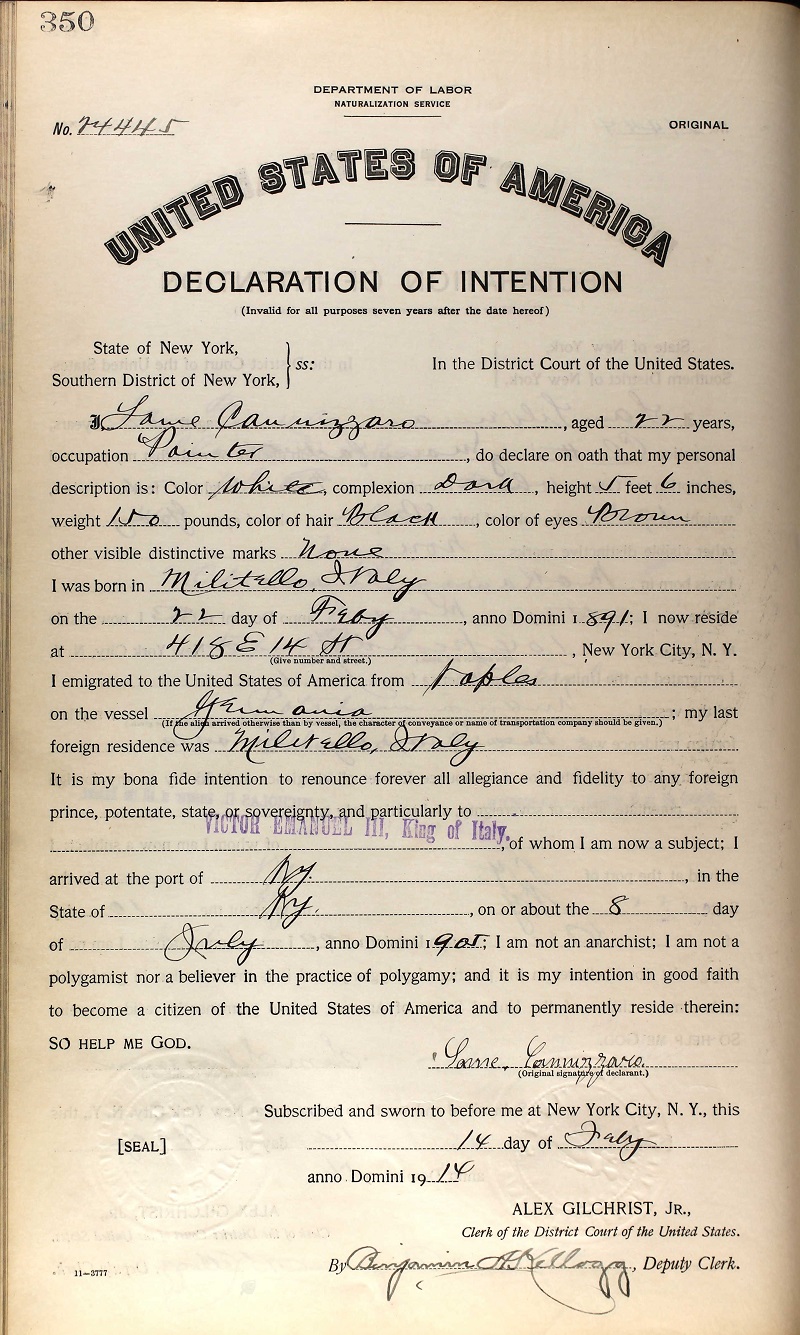 350
DEPARTMENT OF LABOR
NATURALIZATION SERVICE
No. 24445 ORIGINAL
UNITED STATES OF AMERICA
DECLARATION OF INTENTION
(Invalid for all purposes seven years after the date hereof)
State of New York,
Southern District of New York, ss: In the District Court of the United States.
I, Cannizzaro, aged 22 years,
occupation Painter, do declare on oath that my personal
description is: Color White, complexion Dark, height 5 feet 6 inches,
weight 150 pounds, color of hair Black, color of eyes Brown
other visible distinctive marks None
I was born in Militello, Italy
on the 22 day of Feby, anno Domini 1891; I now reside
at 418 E 14 St, New York City, N. Y.
(Give number and street.)
I emigrated to the United States of America from Naples
on the vessel Germania; my last
(If the alien arrived otherwise than by vessel, the character of conveyance or name of transportation company should be given.)
foreign residence was Militello, Italy
It is my bona fide intention to renounce forever all allegiance and fidelity to any foreign
prince, potentate, state, or sovereignty, and particularly to
VICTOR EMANUEL III, King of Italy,
, of whom I am now a subject; I
arrived at the port of NY., in the
State of NY., on or about the 8 day
of July, anno Domini 1905; I am not an anarchist; I am not a
polygamist nor a believer in the practice of polygamy; and it is my intention in good faith
to become a citizen of the United States of America and to permanently reside therein:
SO HELP ME GOD.
Cannizzaro.
(Original signature of declarant.)
Subscribed and sworn to before me at New York City, N. Y., this
[SEAL] 14 day of Feby
anno Domini 1914
ALEX GILCHRIST, JR.,
Clerk of the District Court of the United States.
By Benjamin A Kellogg, Deputy Clerk.
11—3777